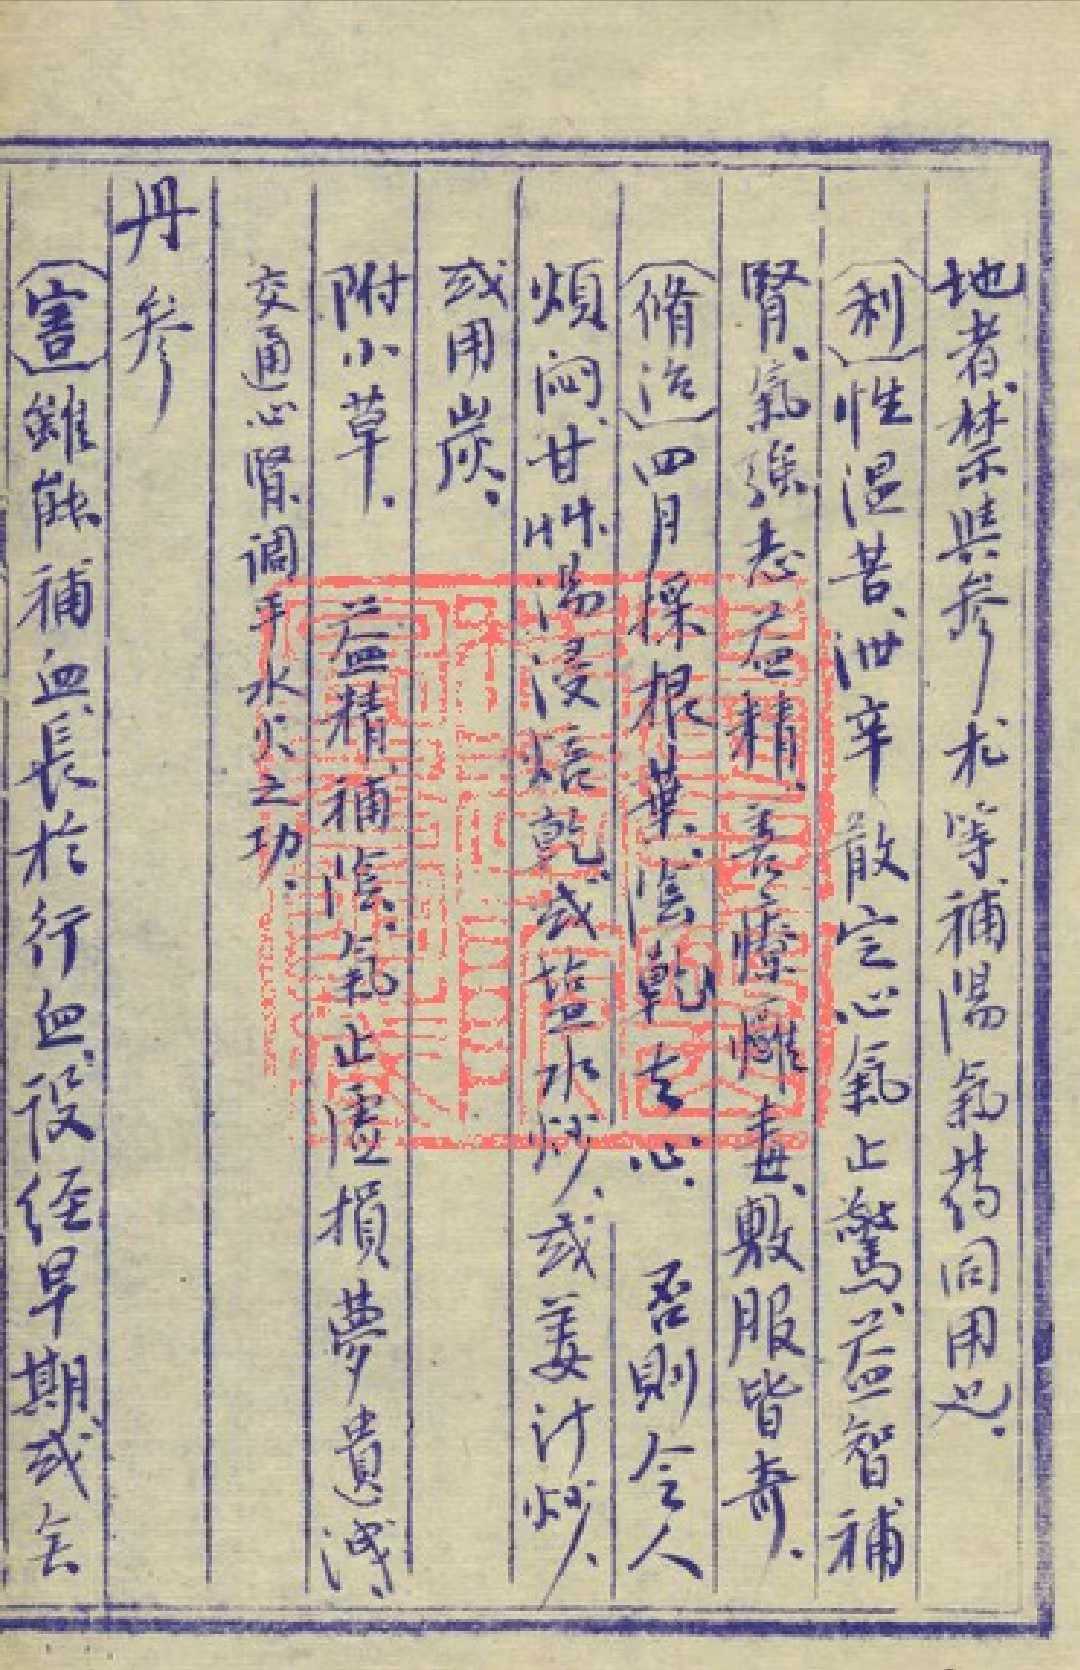 地者、禁與參朮等補陽氣药同用也.
(利)性温苦、泄辛散定心氣止驚、益智補
腎、氣強志益精、善療癰毒、敷服皆奇.
(脩治)四月採根葉、陰乾去心、否則令人
煩悶、甘艸湯浸焙乾、或盐水炒、或姜汁炒、
或用炭.
附小草. 益精、補陰、氣止虛損夢遺洩、
交通心腎、调平水火之功.
丹參
(害)雖能補血、長於行血、设经早期、或